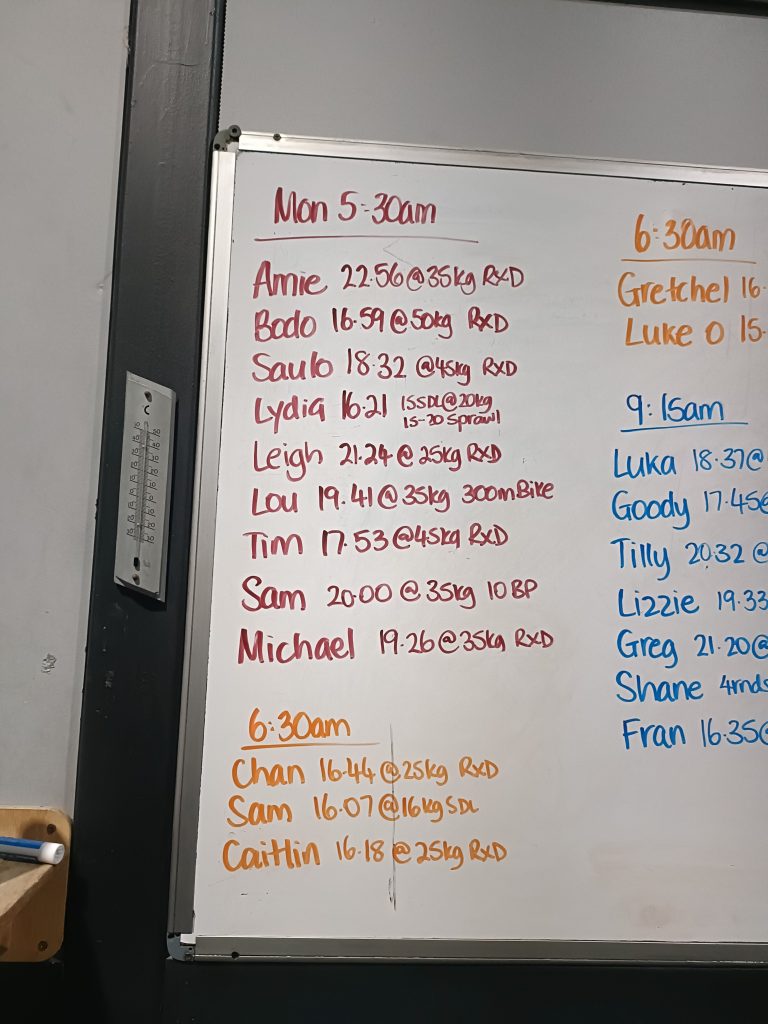 Mon 5:30am
Amie 22.56 @ 35kg RXD
Bodo 16.59 @ 50kg RXD
Saulo 18.32 @ 45kg RXD
Lydia 16.21 15SDL@20kg
15-20 Sprawl
Leigh 21.24 @ 25kg RXD
Lou 19.41 @ 35kg 300m Bike
Tim 17.53 @ 45kg RXD
Sam 20.00 @ 35kg 10 BP
Michael 19.26 @ 35kg RXD
6:30am
Chan 16.44 @ 25kg RXD
Sam 16.07 @ 16kg SDL
Caitlin 16.18 @ 25kg RXD
6:30am
Gretchel 16.
Luke O 15.
9:15am
Luka 18.37 @
Goody 17.45 @
Tilly 20.32 @
Lizzie 19.33
Greg 21.20 @
Shane 4rnds
Fran 16.35 @